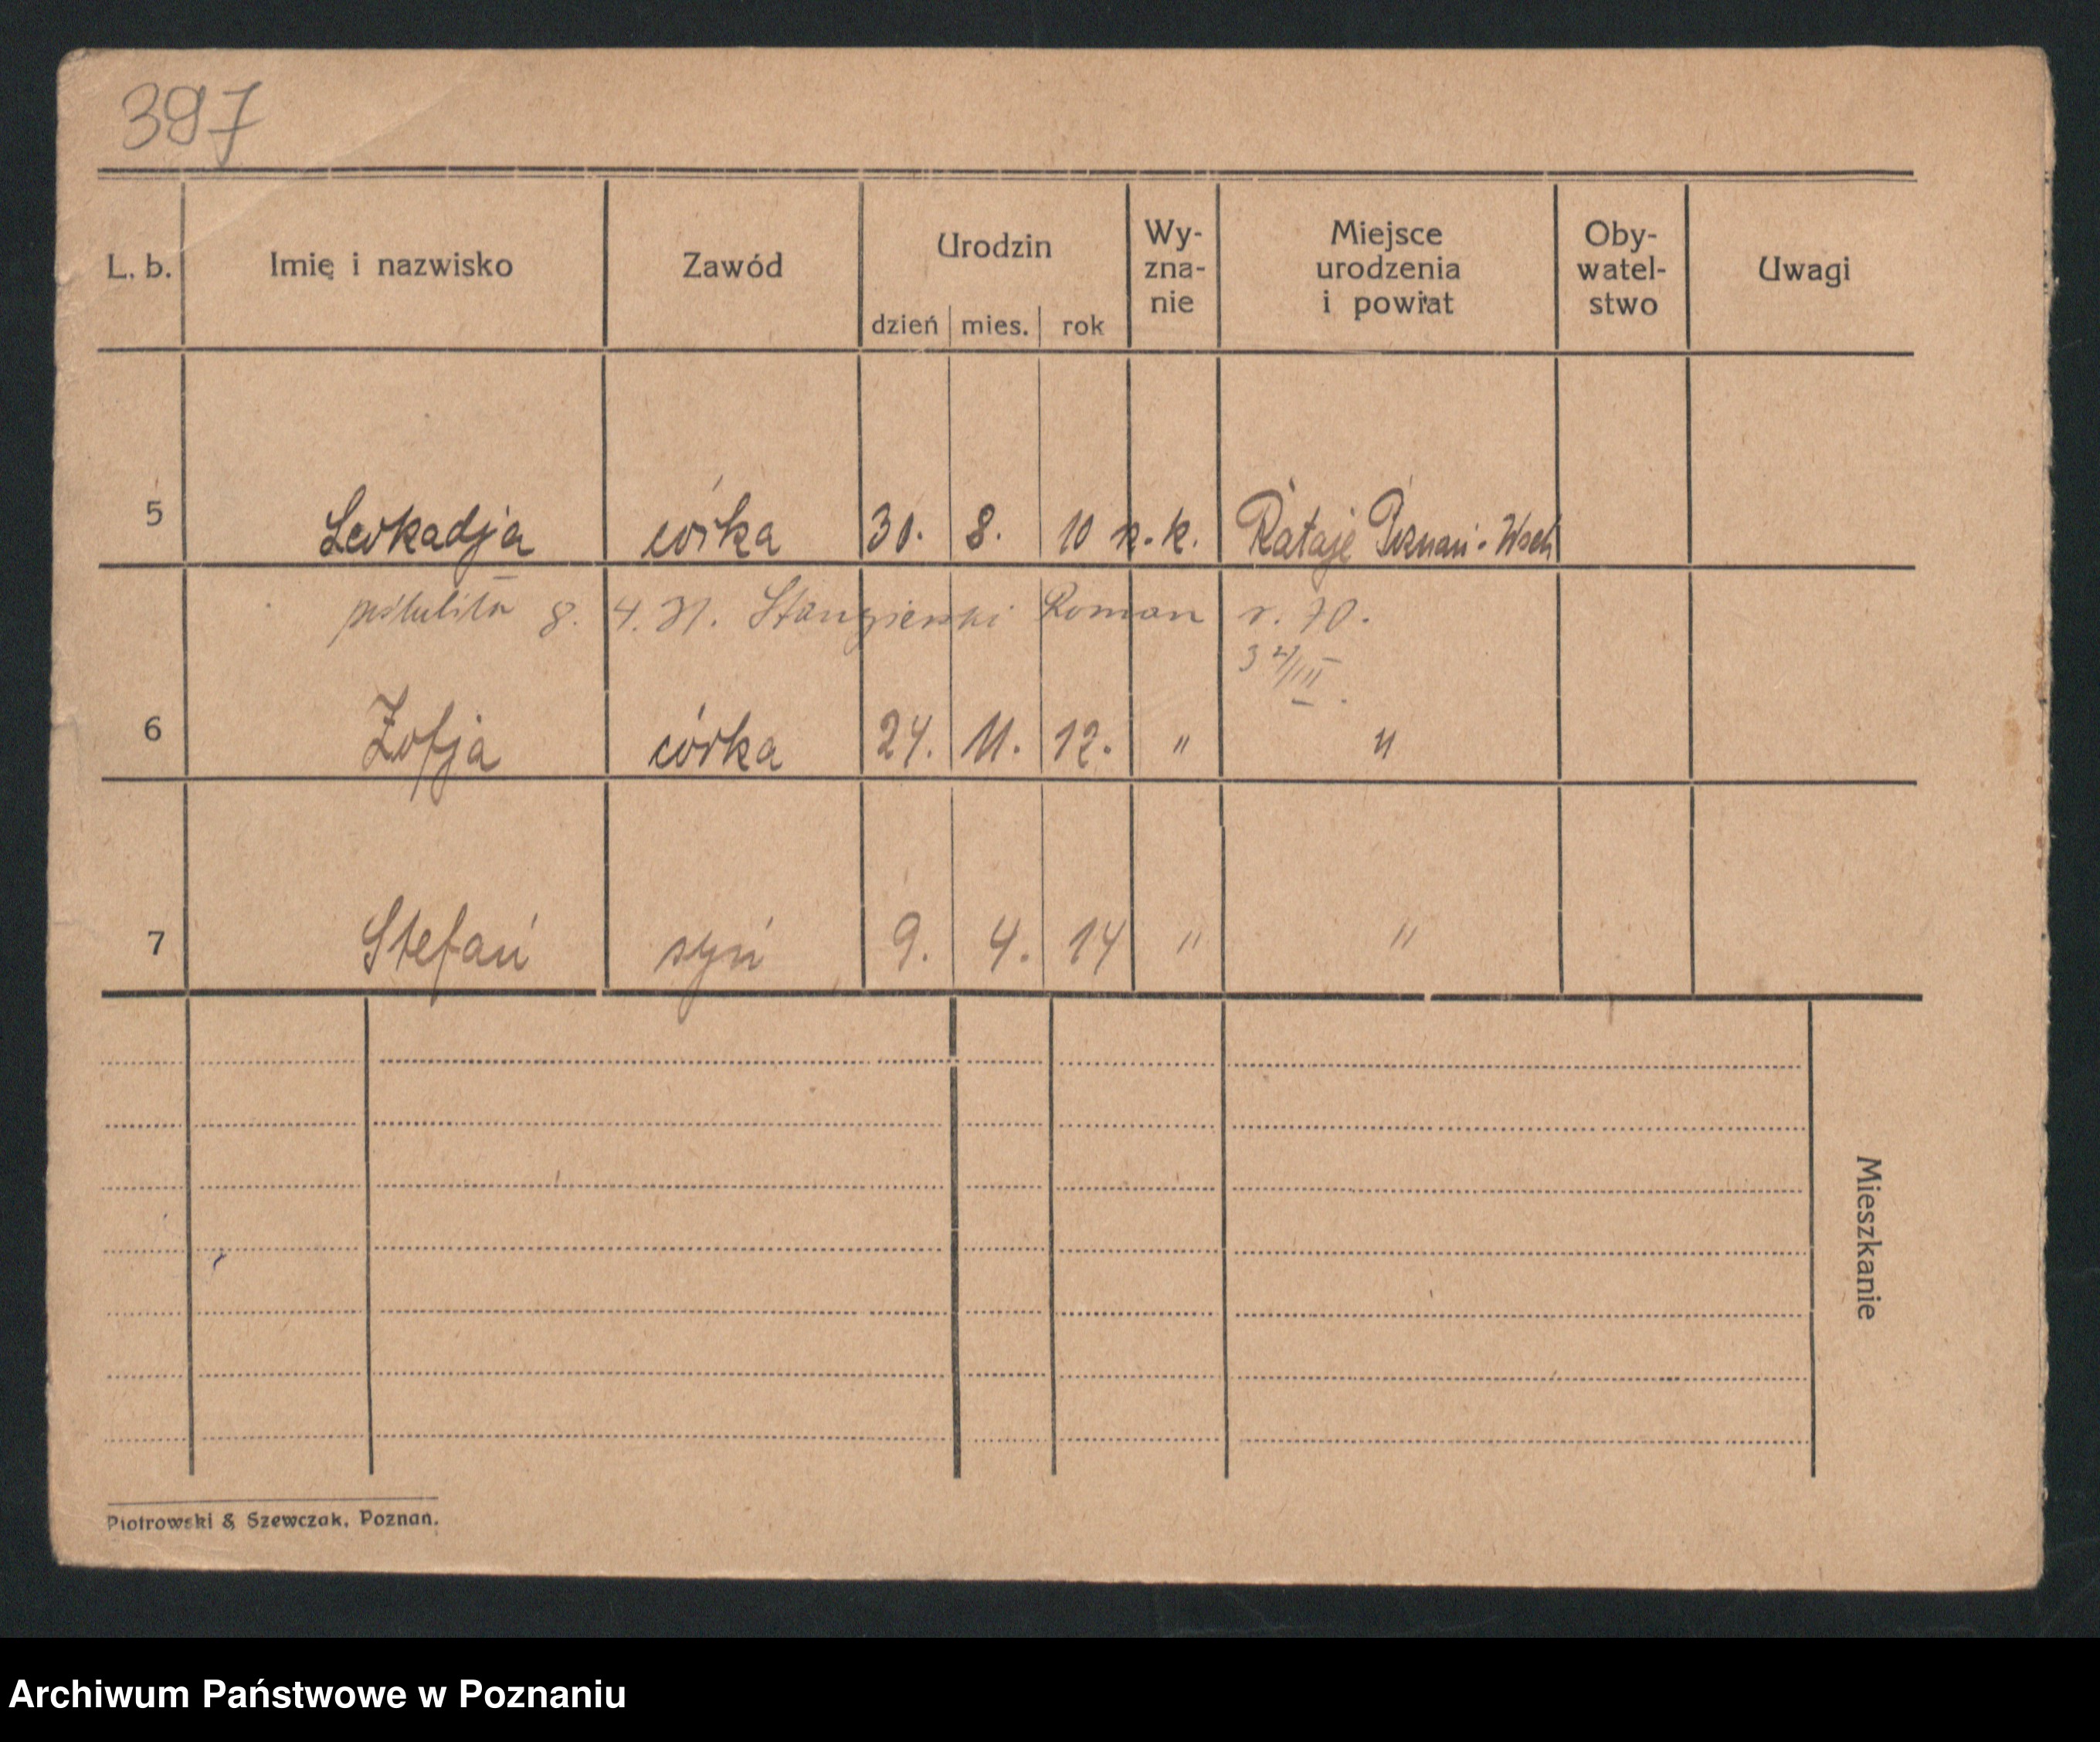 397
L. b. Imię i nazwisko Zawód Urodzin dzień mies. rok Wy-zna-nie Miejsce urodzenia i powiat Oby-watel-stwo Uwagi
5 Leokadja córka 30. 8. 10 r.-k. Rataje Poznań-Wsch
8. 4. 31. Roman r. 70.
6 Zofja córka 24. 11. 12. " "
7 Stefan syn 9. 4. 14 " "
Mieszkanie
Piotrowski & Szewczak, Poznań.
Archiwum Państwowe w Poznaniu